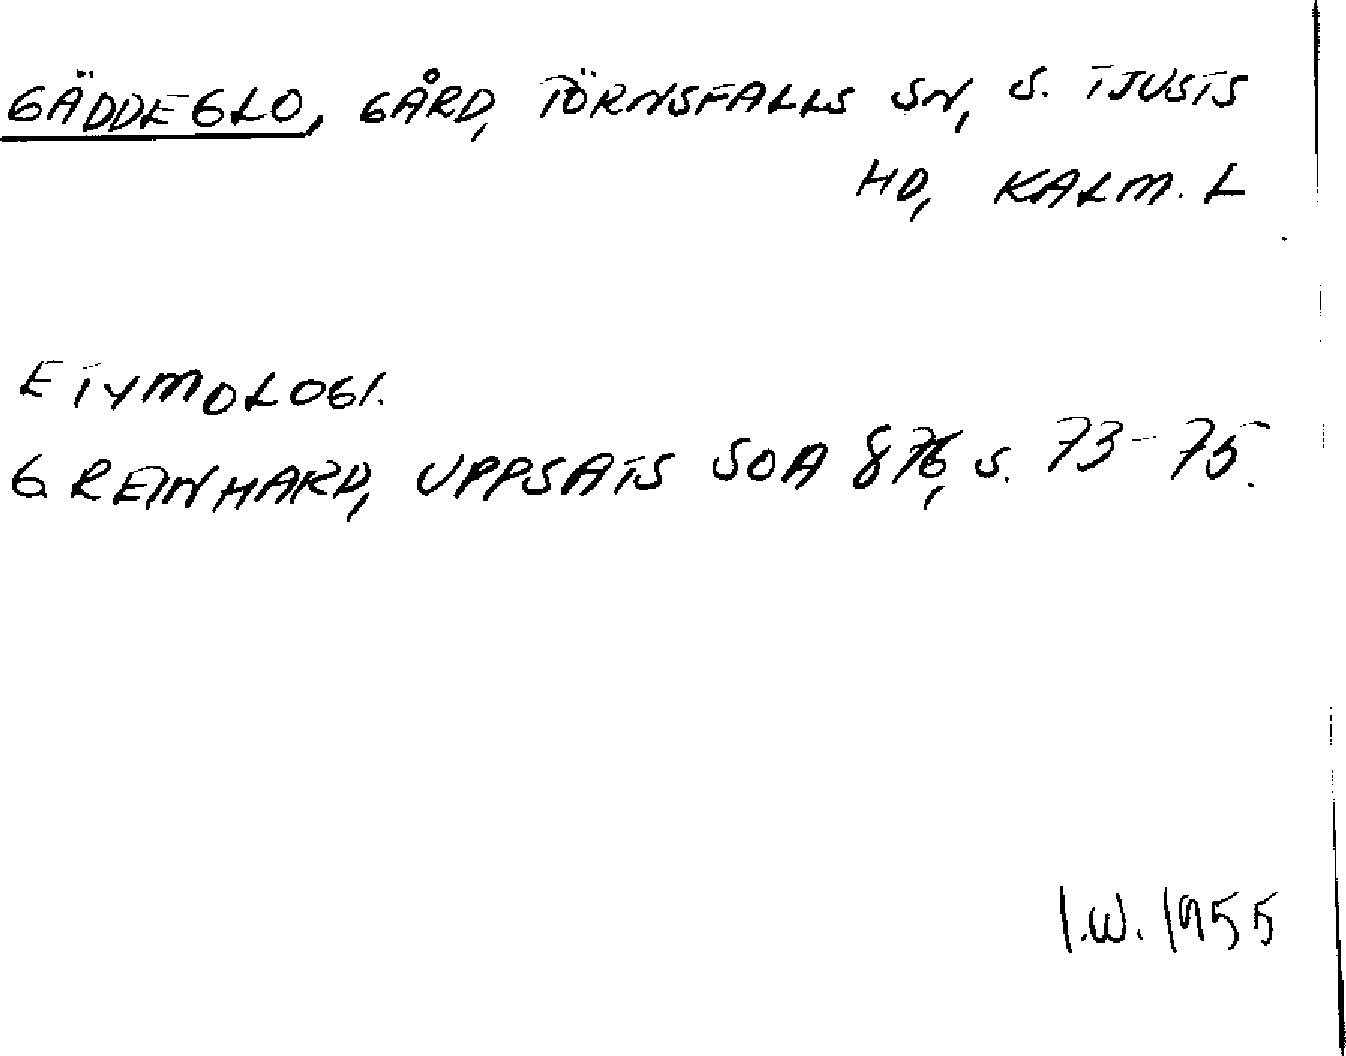 GÄDDEGLO, GÅRD, TÖRNSFALLS SN, S. TJUSTS
HD, KALM. L
ETYMOLOGI.
G REINHARD, UPPSATS SOA 876, S. 73-75.
I.W. 1955